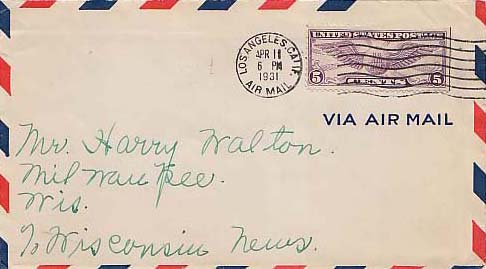 LOS ANGELES, CALIF.
APR 11
6 PM
1931
AIR MAIL
UNITED STATES POSTAGE
5 CENTS 5
VIA AIR MAIL
Mr. Harry Walton.
Milwaukee.
Wis.
℅ Wisconsin News.